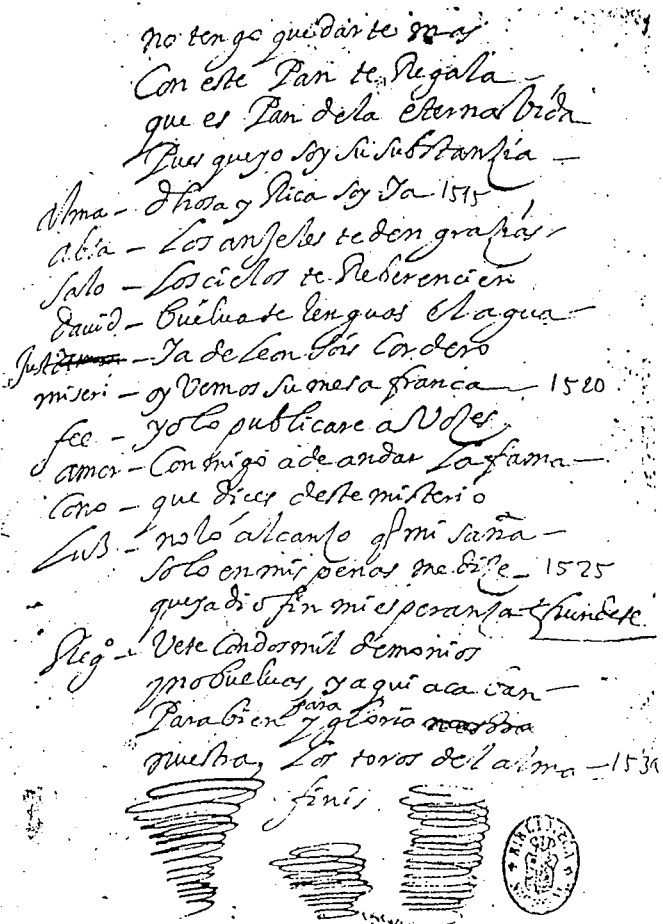 no tengo que darte mas
Con este Pan te Regala
que es Pan dela eterna Vida
Pues que yo soy su substanzia
Alma – dhosa y Rica soy Ya 1515
abra – Los anjeles te den grazias
Salo – Los cielos te Reberencien
david – buelvase lenguas el agua
Just – Ya de Leon sois Cordero
miseri – oy Vemos su mesa franca 1520
fee – yo lo publicare a Vozes
amor – Conmigo a de andar La fama
Cono – que dices deste misterio
Luz – no lo alcanzo q mi saña
solo en mis penas me dize 1525
que ya dio fin mi esperanza hundese
Reg.º – Vete Con dos mil demonios
y no buelvas, y aqui acaban
Para bien y para gloria
nuestra, Los toros del alma – 1530
finis
BIBLIOTECA